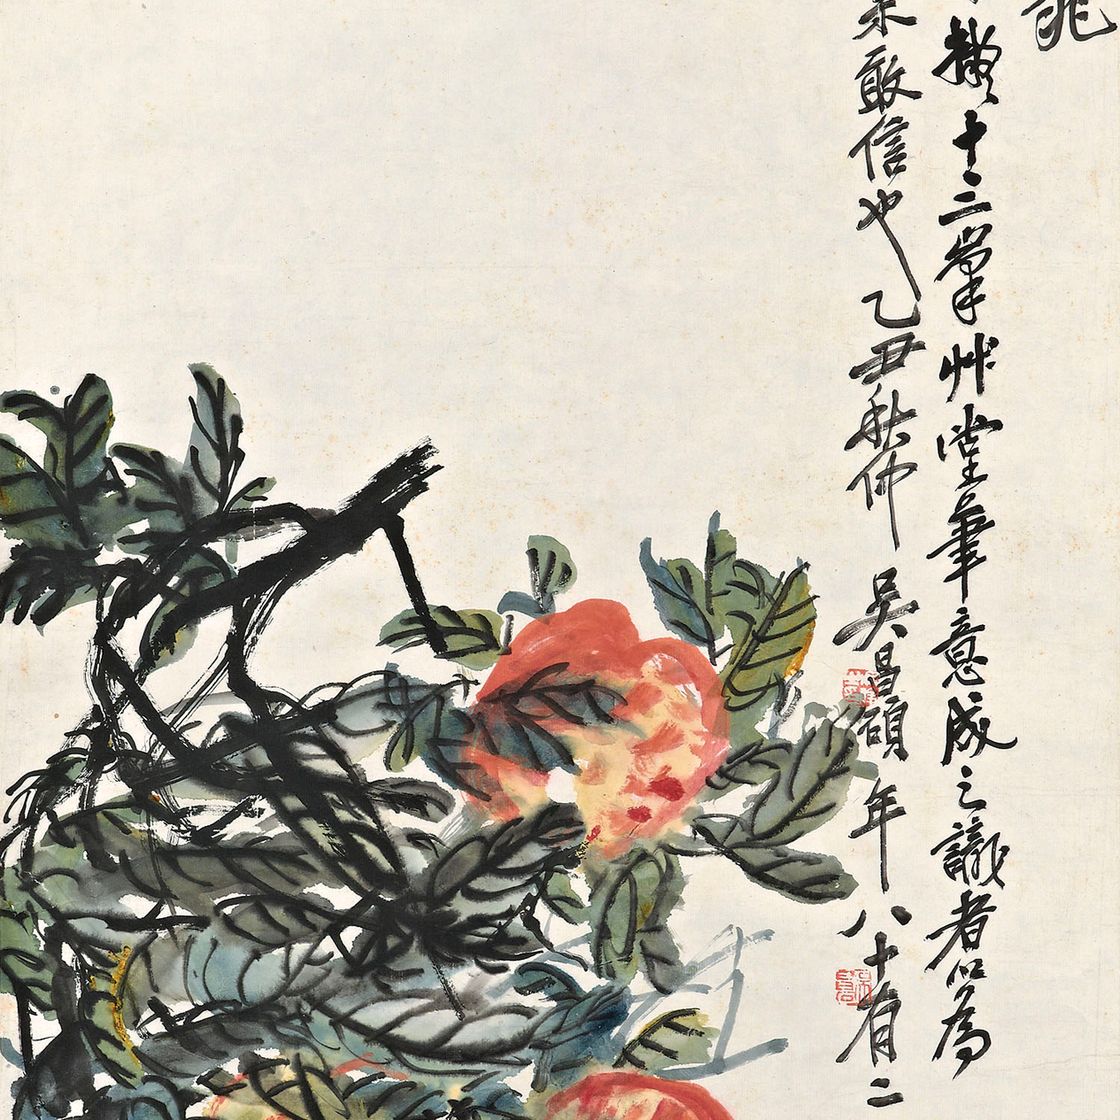 擬十二峯艸堂筆意成之識者以為
未敢信也乙丑秋仲吳昌碩年八十有二